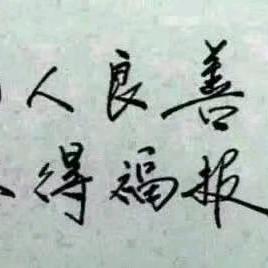 人良善
得福报